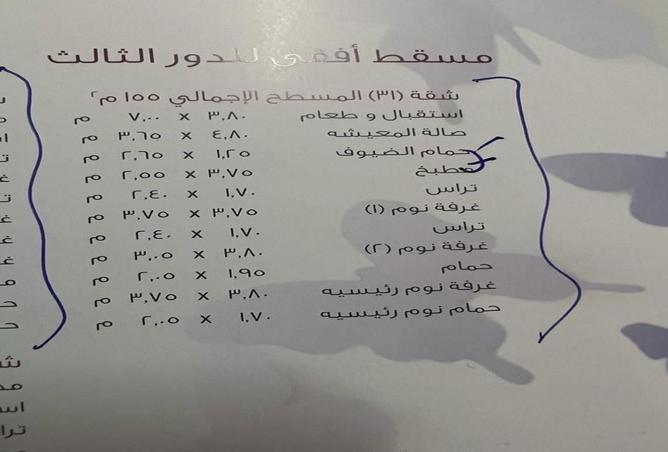 مسقط أفقي للدور الثالث
شقة (٣١) المسطح الإجمالي ١٥٥ م٢
استقبال و طعام ٣,٨٠ x ٧,٠٠ م
صالة المعيشه ٤,٨٠ x ٣,٦٥ م
حمام الضيوف ١,٢٥ x ٢,٦٠ م
مطبخ ٣,٧٥ x ٢,٥٥ م
تراس ١,٧٠ x ٢,٤٠ م
غرفة نوم (١) ٣,٧٥ x ٣,٧٥ م
تراس ١,٧٠ x ٢,٤٠ م
غرفة نوم (٢) ٣,٨٠ x ٣,٠٥ م
حمام ١,٩٥ x ٢,٠٥ م
غرفة نوم رئيسيه ٣,٨٠ x ٣,٧٥ م
حمام نوم رئيسيه ١,٧٠ x ٢,٠٥ م